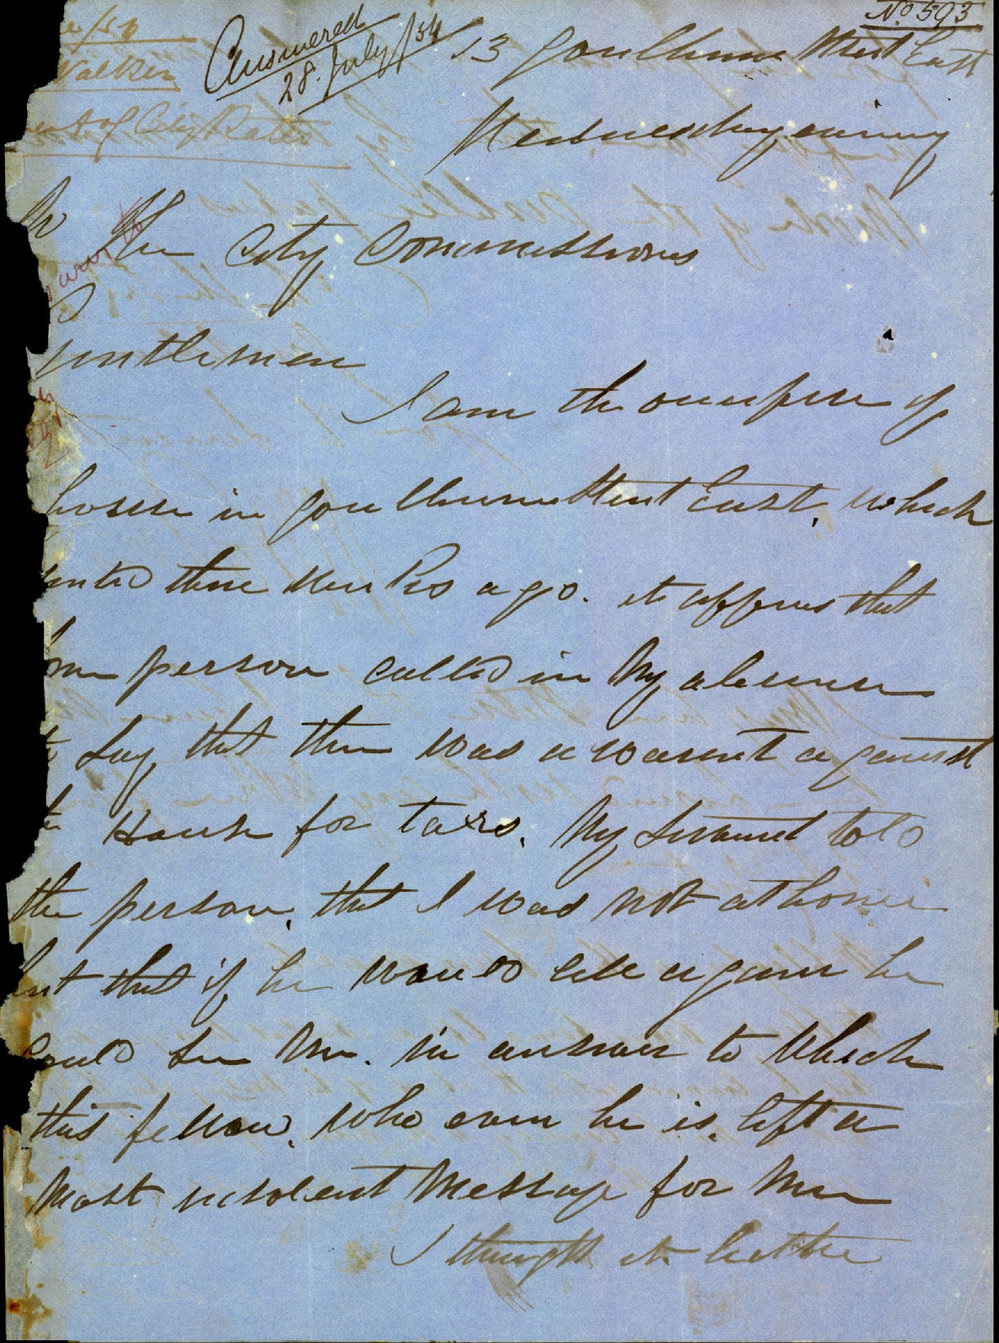 No 593
Answered
28 July /54
/54
Walker
of City Rates
13 Goulburn Street East
Wednesday evening
To The City Commissioners
Gentlemen
I am the occupier of
house in Goulburn Street East, which
three weeks ago. it appears that
person called in My absence
to Say that there was a warant against
the House for taxes. My Servant told
the person, that I was not at home
but that if he would call again he
could See Me. in answer to Which
this fellow, Who ever he is, left a
Most insolent Message for Me
I thought it better